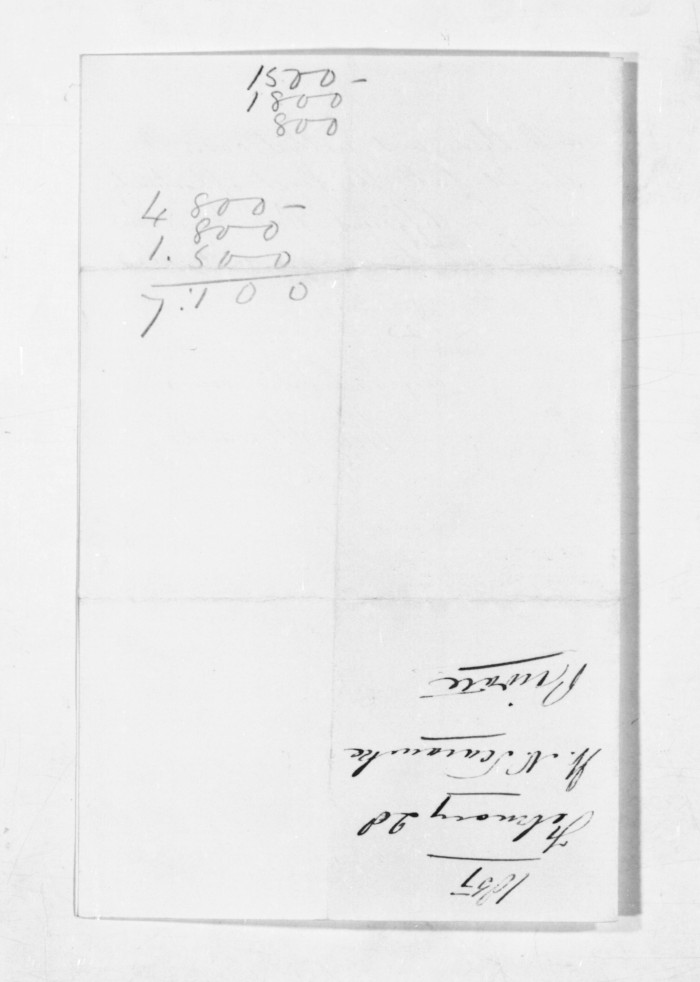 1520 -
1800
800
4 800 -
800
1.500
7.100
1851
February 28
Private